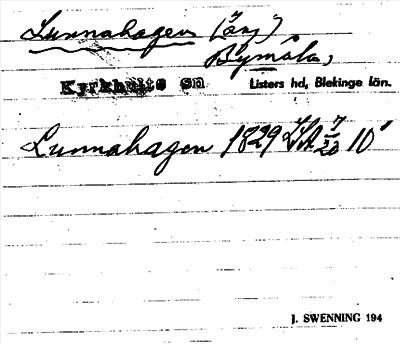 Lunnahagen (äng)
Bymåla,
Kyrkhults sn Listers hd, Blekinge län.
Lunnahagen 1829 LSA 7/20 10
J. SWENNING 194